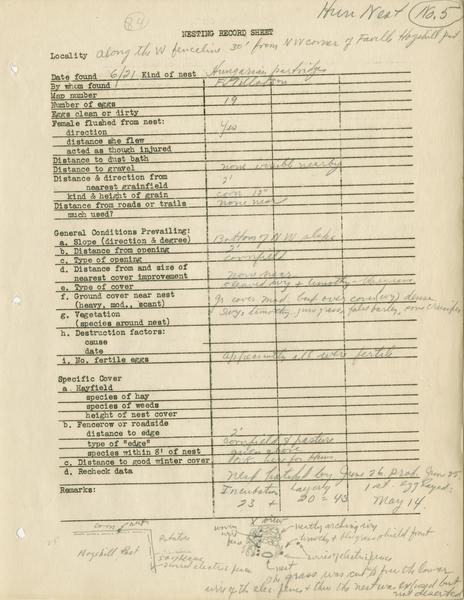 Hun Nest No. 5
84
NESTING RECORD SHEET
Locality along the W fenceline 30' from NW corner of Faville Hogshill past
Date found 6/21 Kind of nest Hungarian partridge
By whom found
Map number
Number of eggs 19
Eggs clean or dirty
Female flushed from nest: yes
direction
distance she flew
acted as though injured
Distance to dust bath
Distance to gravel none visible nearby
Distance & direction from nearest grainfield 2'
kind & height of grain corn 12"
Distance from roads or trails none near
much used?
General Conditions Prevailing:
a. Slope (direction & degree) Bottom of NW slope
b. Distance from opening 2'
c. Type of opening cornfield
d. Distance from and size of nearest cover improvement none near
e. Type of cover timothy
f. Ground cover near nest (heavy, mod., scant) cover mod. but over dense
g. Vegetation (species around nest) timothy, june grass,
h. Destruction factors:
cause
date
i. No. fertile eggs apparently all were fertile
Specific Cover
a. Hayfield
species of hay
species of weeds
height of nest cover
b. Fencerow or roadside
distance to edge 2'
type of "edge" cornfield & pasture
species within 8' of nest given above
c. Distance to good winter cover
d. Recheck data Nest hatched by June 26 Prob. June 25
Remarks: Incubation Laying 1st. egg layed:
23 + 20 = 43 May 14
corn
Potatoes
Hogshill Past
nest
neatly arching ivy
timothy & bluegrass shield front
wires of electric fence
The grass was cut to free the lower
wire of the elec. fence & thus the nest was exposed but
not deserted